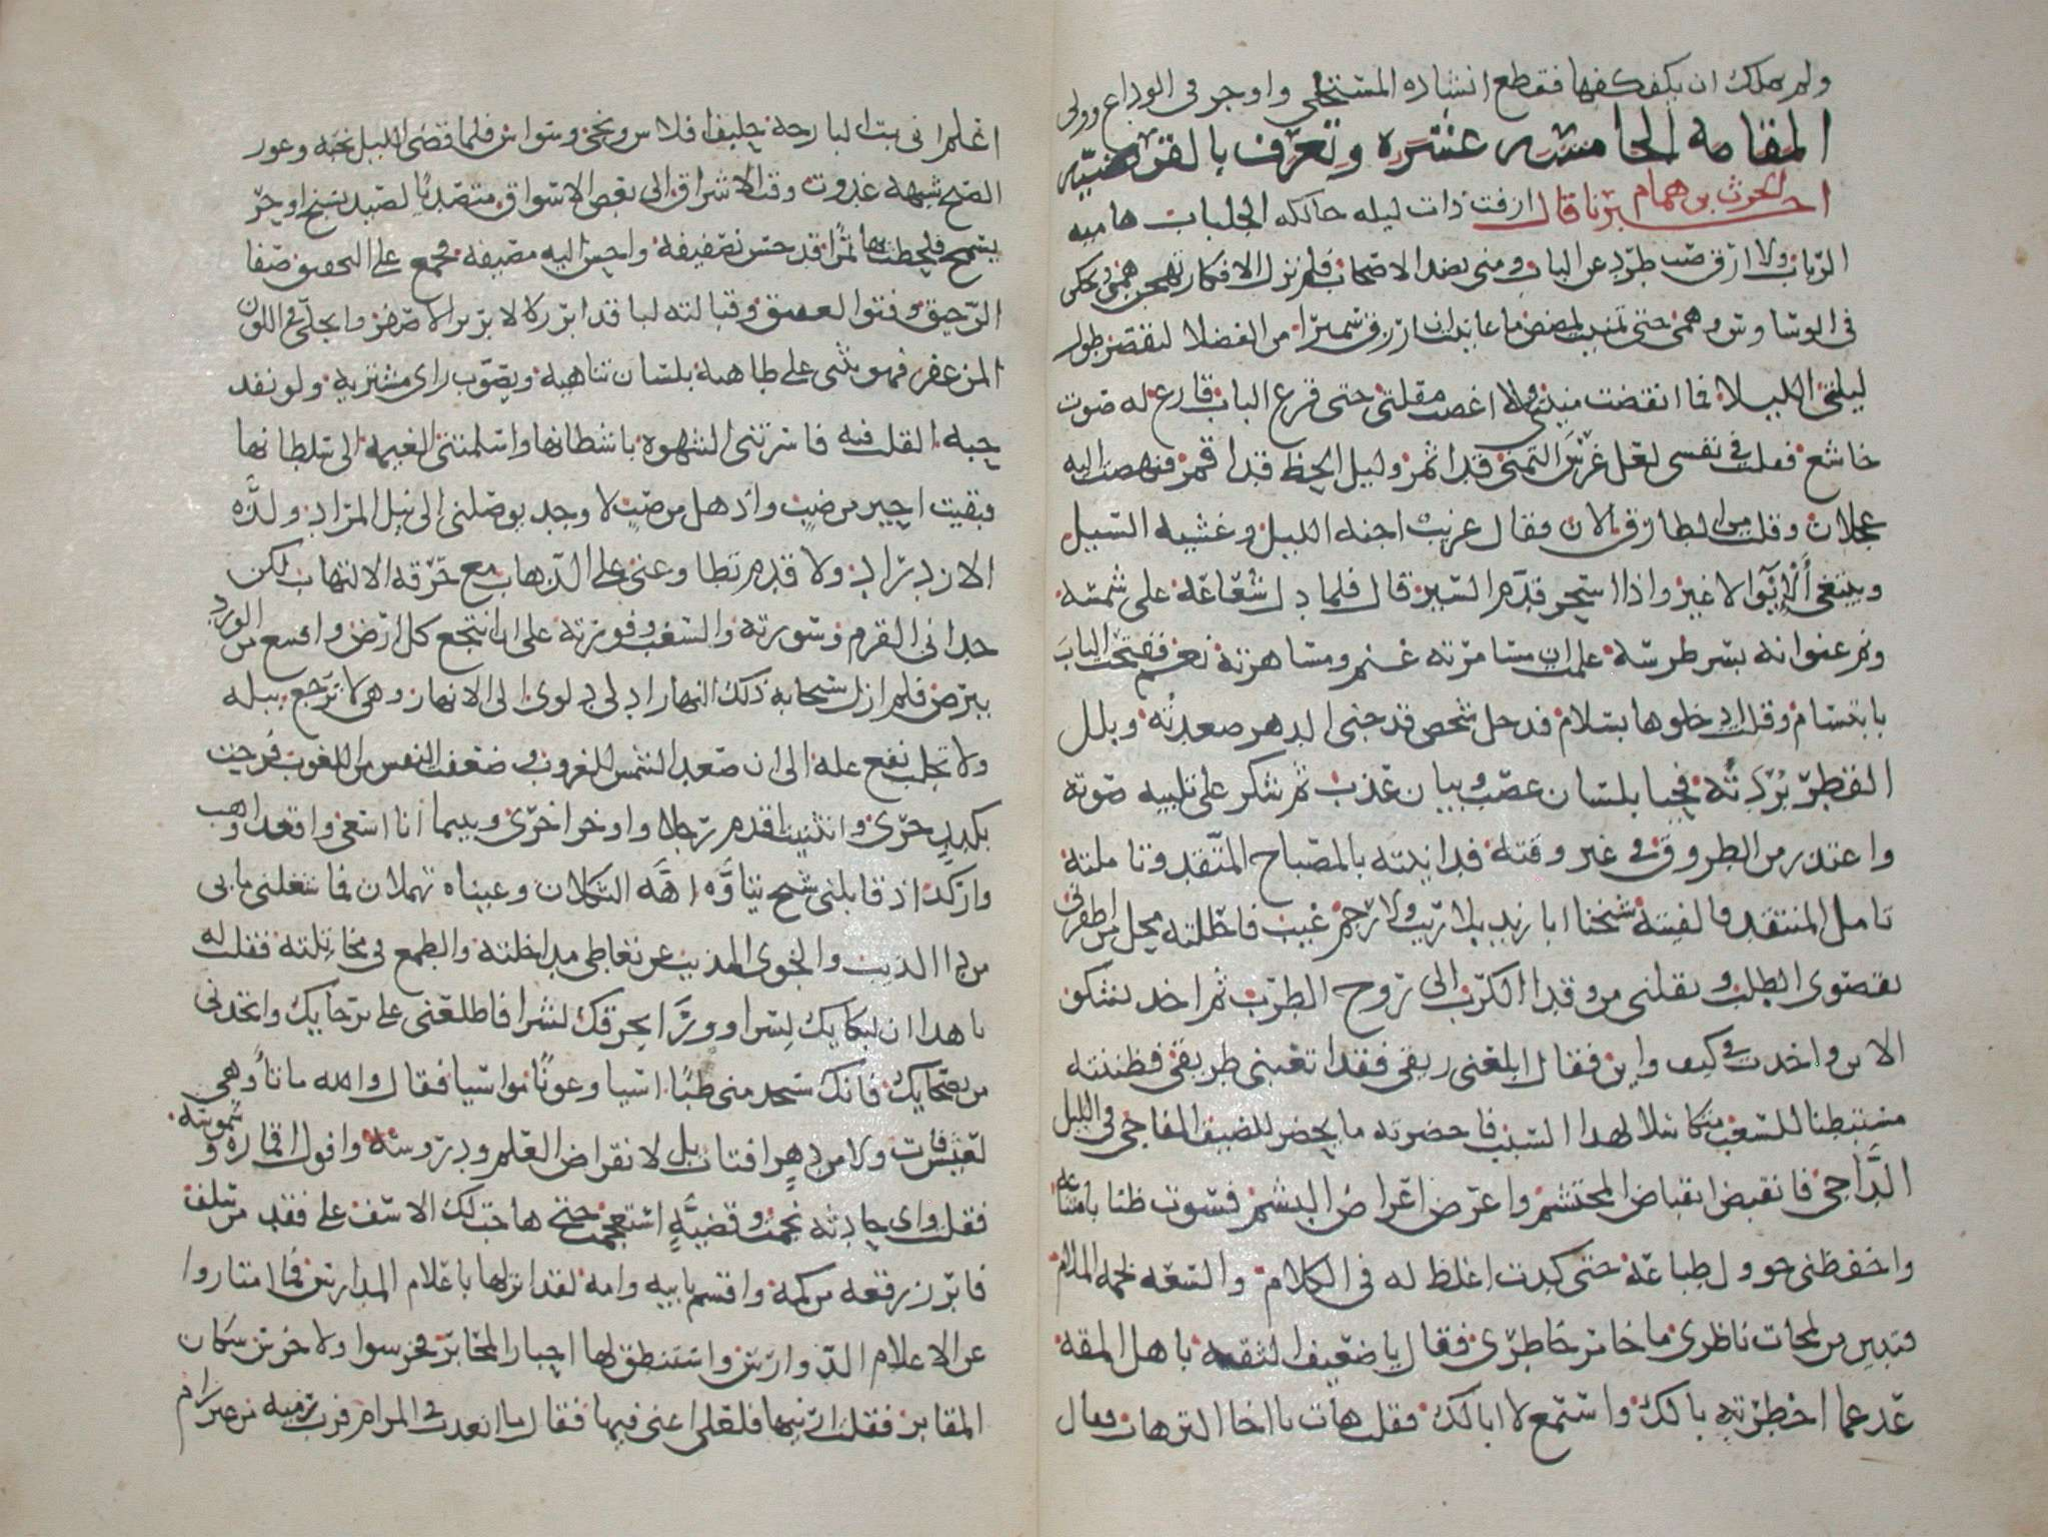 ولم يملك ان يكفكفها فقطع انشاده المستحلى واوجز فى الوداع وولى
المقامه الخامسه عشره وتعرف بالفرضيه
اخبر الحرث بن همام نا قال ارقت ذات ليله حالكه الجلباب هاميه
الرباب ولا ارق صب طرد عن الباب ومنى بصد الاصحاب فلم تزل الافكار تهجن همى ويجلن
فى الوساوس وهمى حتى تمنيت لمضض ما عانيت ان ارزق سميرا من الفضلا ليقصر طول
ليلتى الليلا فما انقضت منيتى ولا اغمضت مقلتى حتى قرع الباب قارع له صوت
خاشع فقلت فى نفسى لعل غرس التمنى قد اثمر وليل الحظ قد اقمر فنهضت اليه
عجلان وقلت من الطارق الان فقال غريب اجنه الليل وغشيه السيل
ويبتغى الايوا لا غير واذا اسحر قدم السير قال فلما دل شعاعه على شمسه
ونم عنوانه بسر طرسه علمت ان مسامرته غنم ومساهرته نعم ففتحت الباب
بابتسام وقلت ادخلوها بسلام فدخل شخص قد حنى الدهر صعدته وبلل
القطر بردته فحيا بلسان عضب وبيان عذب ثم شكر على تلبيه صوته
واعتذر من الطروق فى غير وقته فدانيته بالمصباح المتقد وتاملته
تامل المنتقد فالفيته شيخنا ابا زيد بلا ريب ولا رجم غيب فاحللته محل من اظفرنى
بقصوى الطلب ونقلنى من وقد الكرب الى روح الطرب ثم اخذ يشكو
الاين واخذت فى كيف واين فقال ابلعنى ريقى فقد اتعبنى طريقى فظننته
مستبطنا للسغب متكاسلا لهذا السبب فاحضرته ما يحضر للضيف المفاجى فى الليل
الداجى فانقبض انقباض المحتشم واعرض اعراض البشم فسوت ظنا بامتناعه
واحفظنى حوول طباعه حتى كدت اغلظ له فى الكلام والسعه بحمه الملام
فتبين من لمحات ناظرى ما خامر خاطرى فقال يا ضعيف الثقه باهل المقه
عد عما اخطرته بالك واستمع لا ابا لك فقلت هات يا اخا الترهات فقال
اعلم انى بت البارحه حليف افلاس ونجى وسواس فلما قضى الليل نحبه وغور
الصبح شهبه غدوت وقت الاشراق الى بعض الاسواق متصديا لصيد يسنح او حر
يسمح فلحظت بها تمرا قد حسن تصفيفه واحسن اليه مصيفه فجمع على التحقيق صفا
الرحيق وقنوا العقيق وقبالته لبا قد ابرز كالابريز الاصفر وانجلى فى اللون
المزعفر فهو يثنى على طاهيه بلسان تناهيه ويصوب راى مشتريه ولو نقد
حبه القلب فيه فاسرتنى الشهوه باشطانها واسلمتنى العيمه الى سلطانها
فبقيت احير من ضب واذهل من صب لا وجد يوصلنى الى نيل المراد ولذه
الازدراد ولا قدم تطاوعنى على الذهاب مع حرقه الالتهاب لكن
حدانى القرم وسورته والسغب وفورته على ان انتجع كل ارض واقتنع من الورد
ببرض فلم ازل سحابه ذلك النهار ادلى دلوى الى الانهار وهى لا ترجع ببله
ولا تجلب نقع غله الى ان صغت الشمس للغروب وضعفت النفس من اللغوب فرحت
بكبد حرى وانثنيت اقدم رجلا واوخر اخرى وبينما انا اسعى واقعد واهب
واركد اذ قابلنى شيخ يتاوه اهه الثكلان وعيناه تهملان فما شغلنى ما بى
من دا الذيب والخوى المذيب عن تعاطى مداخلته والطمع فى مخاتلته فقلت له
يا هذا ان لبكايك لسرا وورا تحرقك لشرا فاطلعنى على برحايك واتخذنى
من نصحايك فانك ستجد منى طبا اسيا وعونا مواسيا فقال والله ما تاوهى
لعيش فات ولا من دهر افتات بل لانقراض العلم ودروسه وافول اقماره وشموسه
فقلت واى حادثه نجمت وقضيه استعجمت حتى هاجت لك الاسف على فقد من سلف
فابرز رقعه من كمه واقسم بابيه وامه لقد انزلها باعلام المدارس فما امتازوا
عن الاعلام الدوارس واستنطق لها احبار المحابر فخرسوا ولا خرس سكان
المقابر فقلت ارنيها فلعلى اغنى فيها فقال ما ابعدت فى المرام فرب رميه من غير رام